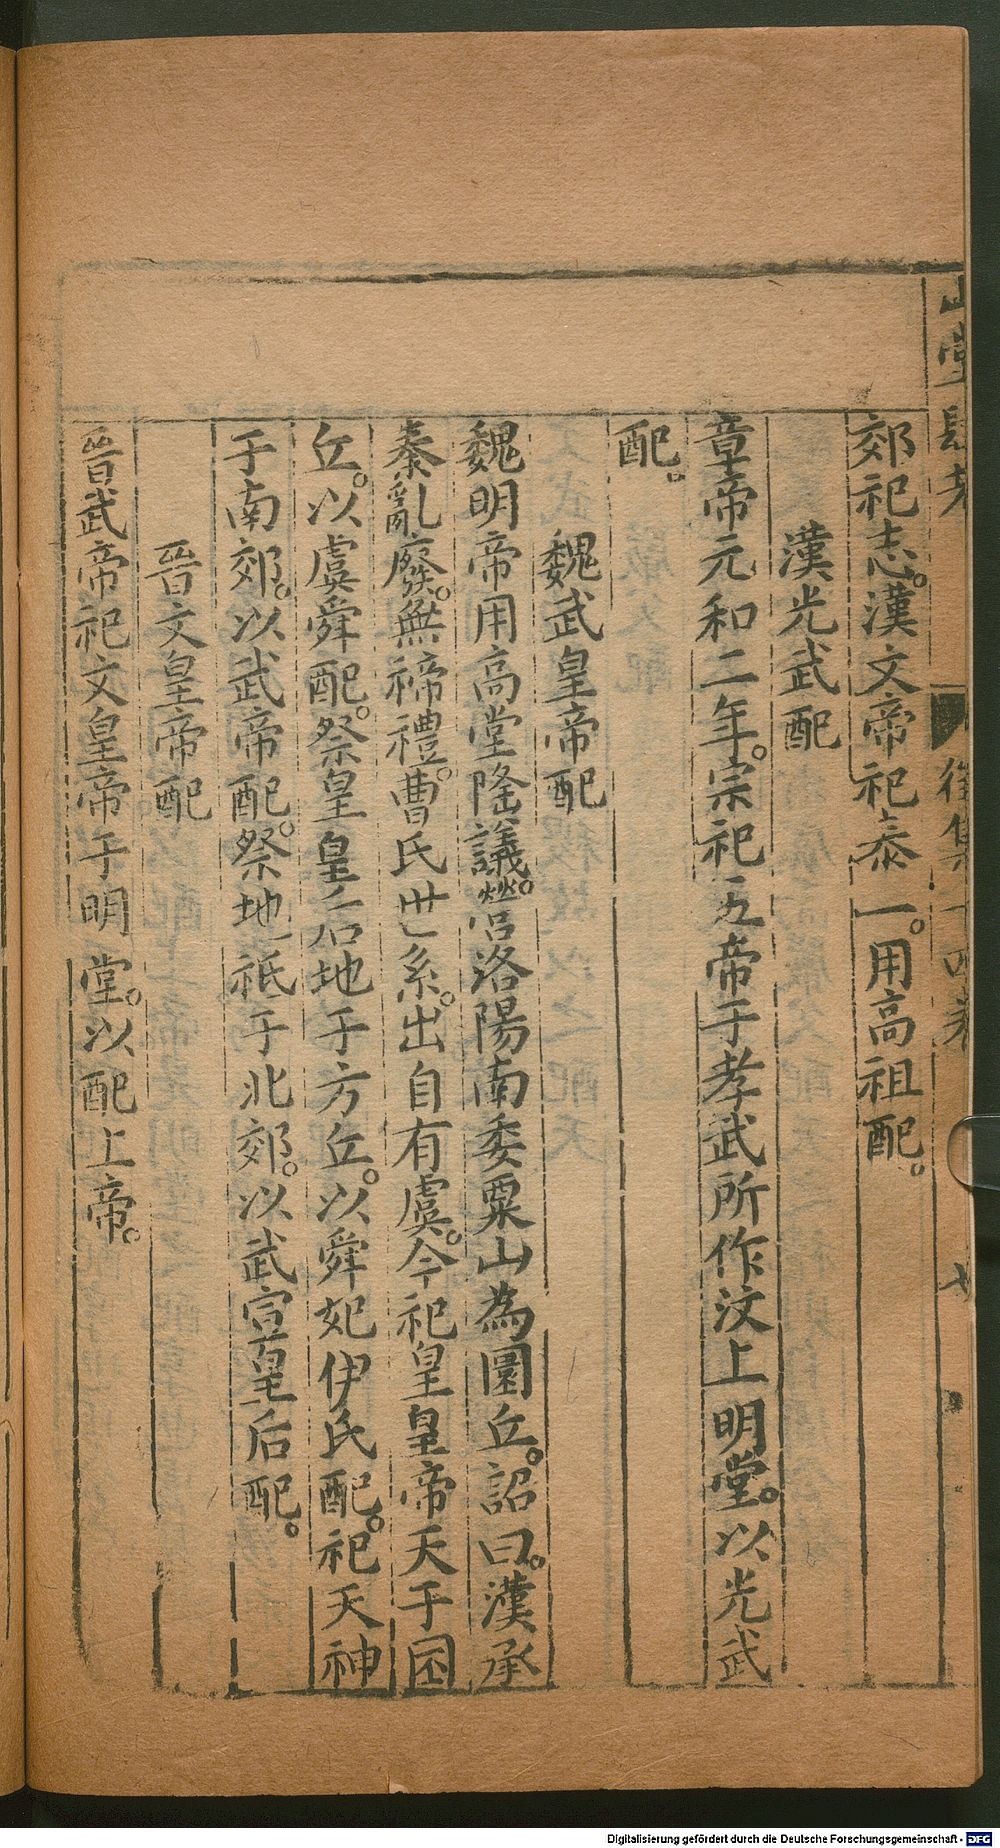 郊祀志。漢文帝祀泰一。用高祖配。
漢光武配
章帝元和二年。宗祀五帝于孝武所作汶上明堂。以光武
配。
魏武皇帝配
魏明帝用高堂隆議。營洛陽南委粟山為圜丘。詔曰。漢承
秦亂廢。無禘禮。曹氏世系。出自有虞。今祀皇皇帝天于圜
丘。以虞舜配。祭皇皇后地于方丘。以舜妃伊氏配。祀天神
于南郊。以武帝配。祭地祇于北郊。以武宣皇后配。
晉文皇帝配
晉武帝祀文皇帝于明堂。以配上帝。
Digitalisierung gefördert durch die Deutsche Forschungsgemeinschaft - DFG